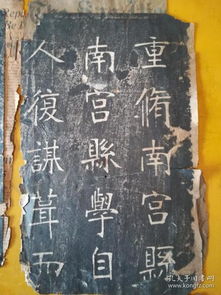 重脩南宫縣
南宫縣學自
人復謀葺而